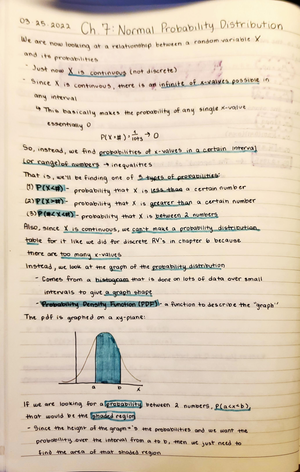 03.25.2022 Ch. 7: Normal Probability Distribution
We are now looking at a relationship between a random variable X
and its probabilities
- Just now X is continuous (not discrete)
- Since X is continuous, there is an infinite of x-values possible in
any interval
↳ This basically makes the probability of any single x-value
essentially 0
So, instead, we find probabilities of x-values in a certain interval
(or range) of numbers → inequalities
That is, we'll be finding one of 3 types of probabilities:
(1) P(X<#) - probability that X is less than a certain number
(2) P(X>#) - probability that X is greater than a certain number
(3) P(#<X<#) - probability that X is between 2 numbers
Also, since X is continuous, we can't make a probability distribution
table for it like we did for discrete RV's in chapter 6 because
there are too many x-values
Instead, we look at the graph of the probability distribution
- Comes from a histogram that is done on lots of data over small
intervals to give a graph shape
- Probability Density Function (PDF) - a function to describe the "graph"
The pdf is graphed on a xy-plane:
a b X
If we are looking for a probability between 2 numbers, P(a<x<b),
that would be the shaded region
- Since the height of the graph = the probabilities and we want the
probability over the interval from a to b, then we just need to
find the area of that shaded region